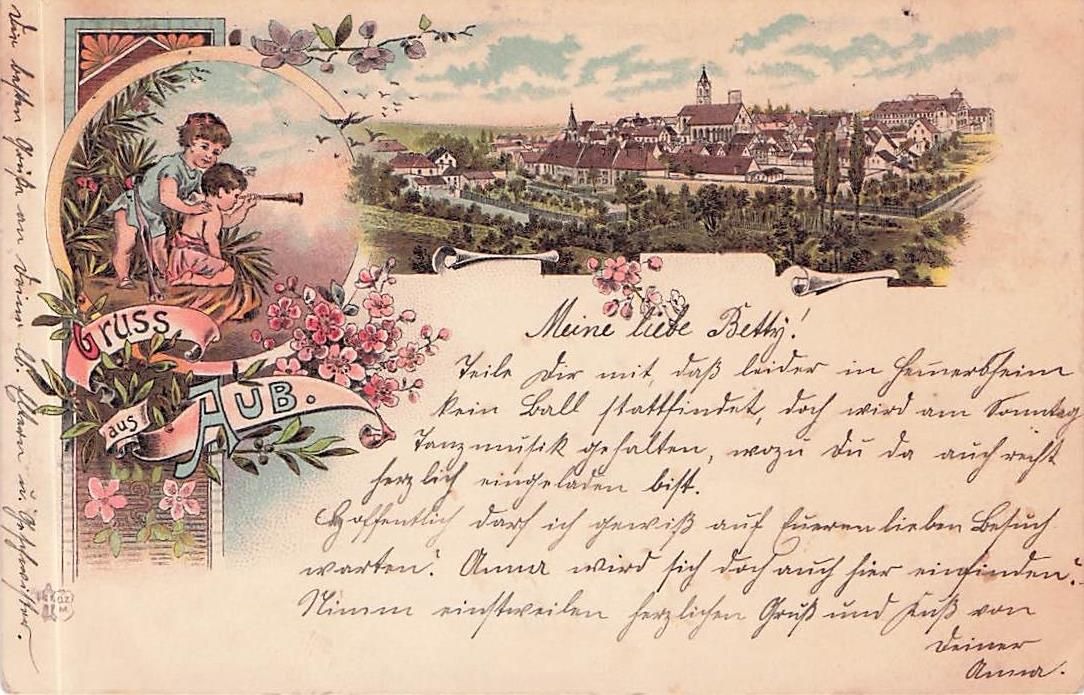 Gruss
aus
AUB.
Meine liebe Betty!
Teile Dir mit, daß leider in Hemmersheim
kein Ball stattfindet, doch wird am Sonntag
Tanzmusik gehalten, wozu Du da auch recht
herzlich eingeladen bist.
Hoffentlich darf ich gewiß auf Eueren lieben Besuch
warten. Anna wird sich doch auch hier einfinden?
Nimm einstweilen herzlichen Gruß und Kuß von
Deiner
Anna.
Die besten Grüße an Deine lb. Eltern u. Geschwister.